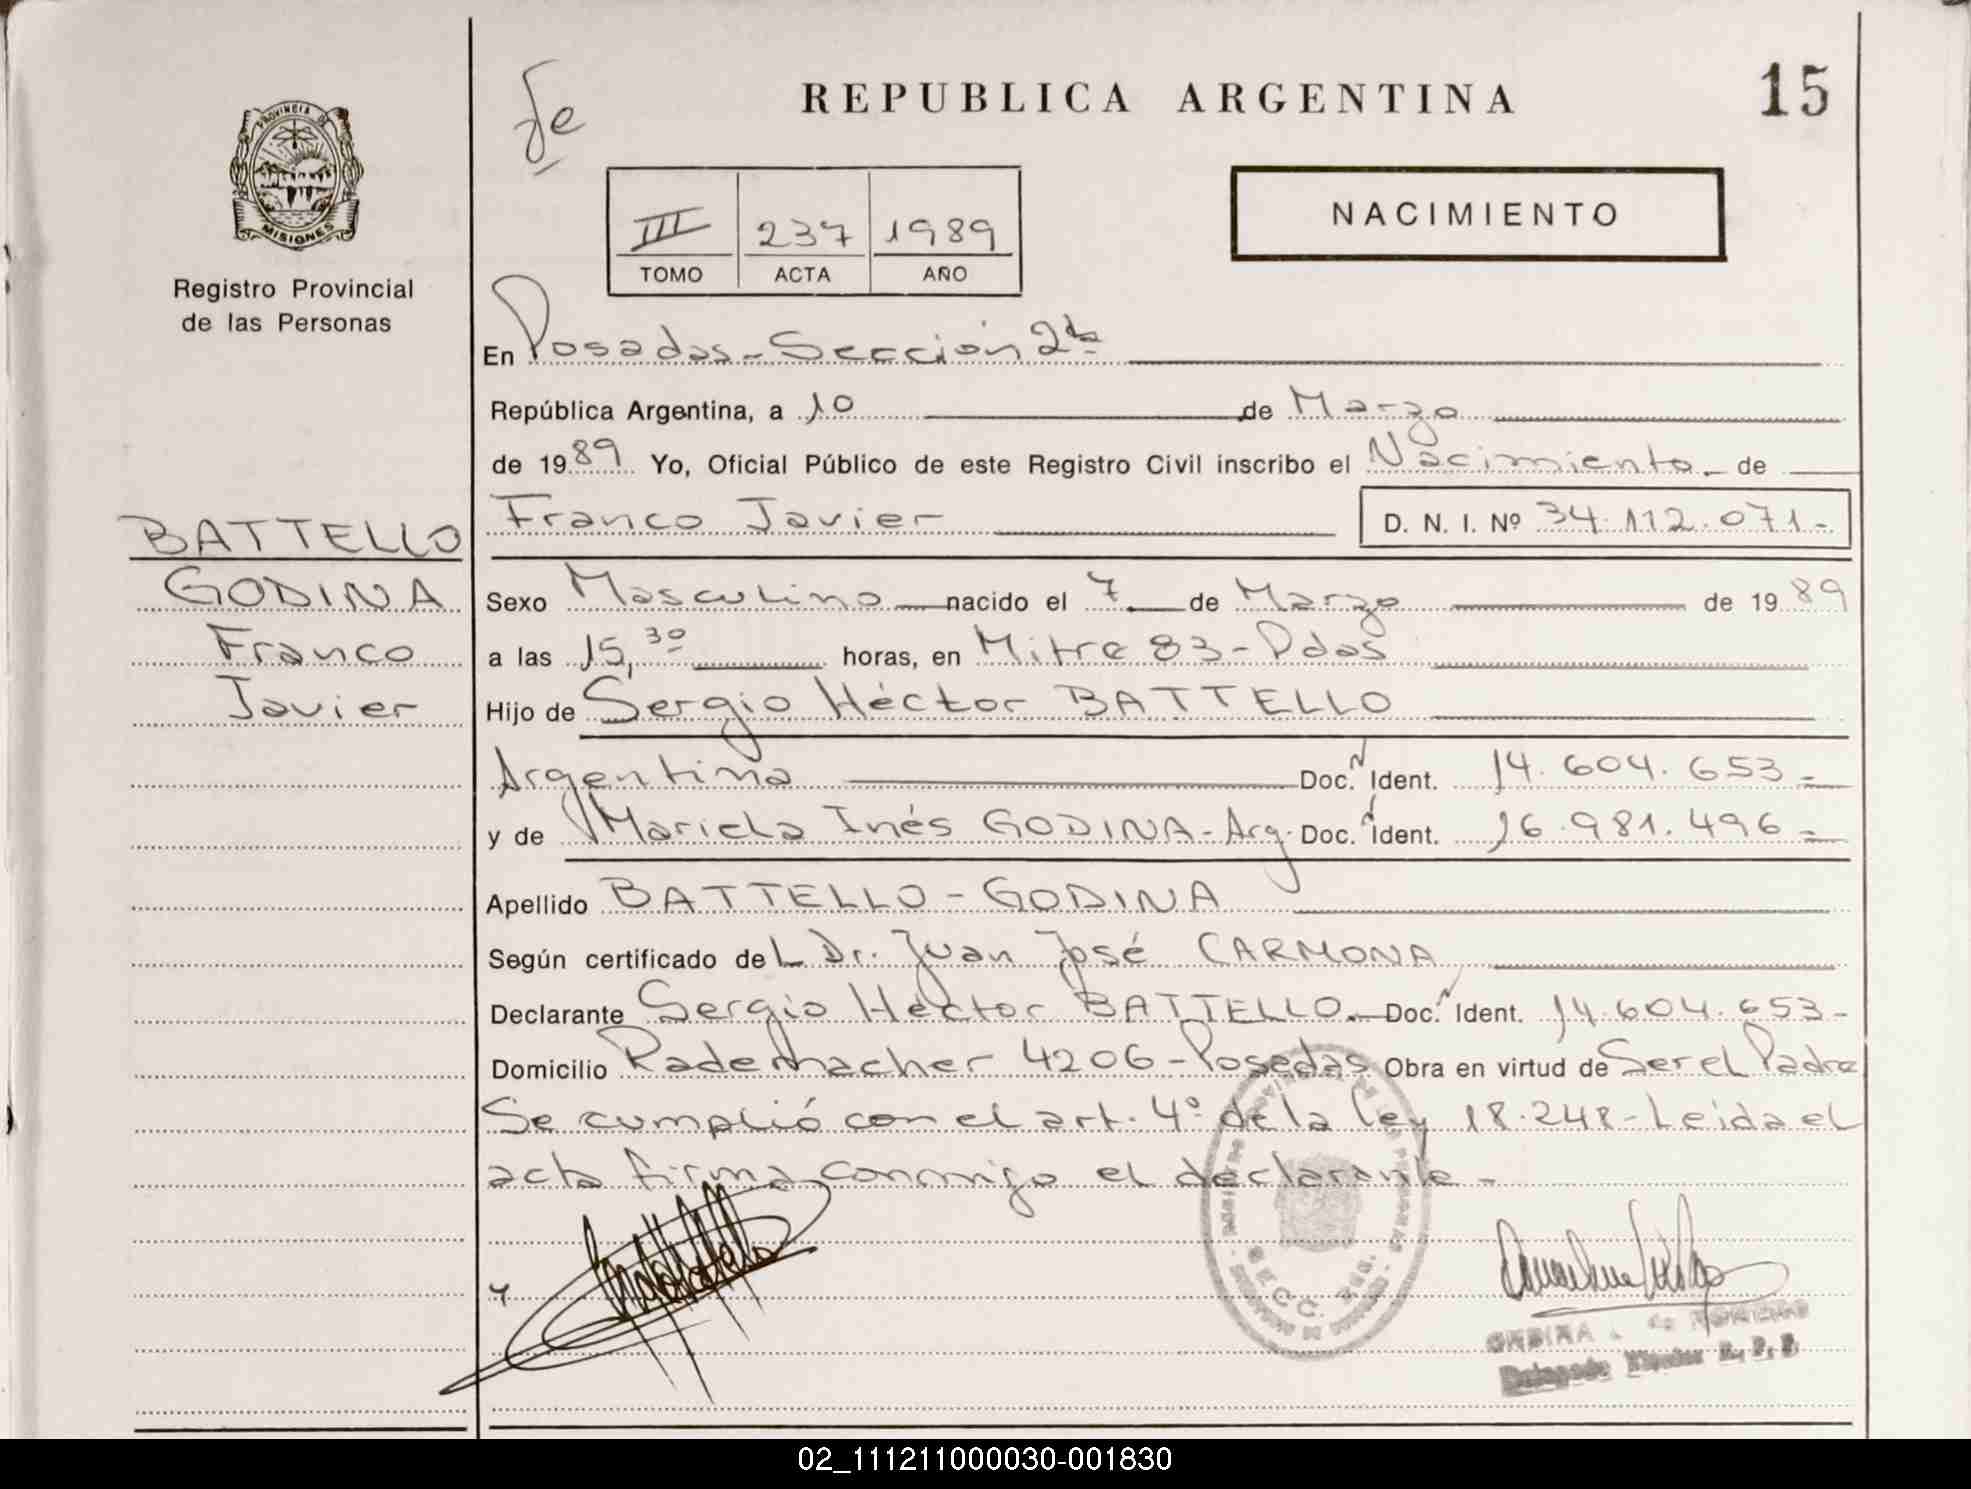 fe
REPUBLICA ARGENTINA
15
PROVINCIA DE
MISIONES
Registro Provincial
de las Personas
III 237 1989
TOMO ACTA AÑO
NACIMIENTO
En Posadas - Sección 2da
República Argentina, a 10 de Marzo
de 1989 Yo, Oficial Público de este Registro Civil inscribo el Nacimiento - de
Franco Javier D. N. I. Nº 34.112.071.-
BATTELLO
GODINA
Franco
Javier
Sexo Masculino nacido el 7 de Marzo de 1989
a las 15,30 horas, en Mitre 83 - Pdas
Hijo de Sergio Héctor BATTELLO
Argentina Doc. Ident. 14.604.653-
y de Mariela Inés GODINA - Arg. Doc. Ident. 16.981.496-
Apellido BATTELLO - GODINA
Según certificado del Dr. Juan José CARMONA
Declarante Sergio Héctor BATTELLO.- Doc. Ident. 14.604.653-
Domicilio Rademacher 4206 - Posadas Obra en virtud de Ser el Padre
Se cumplió con el art. 4º de la ley 18.248 - Leida el
acta firma conmigo el declarante -
Y
SECC. 2da.
02_111211000030-001830